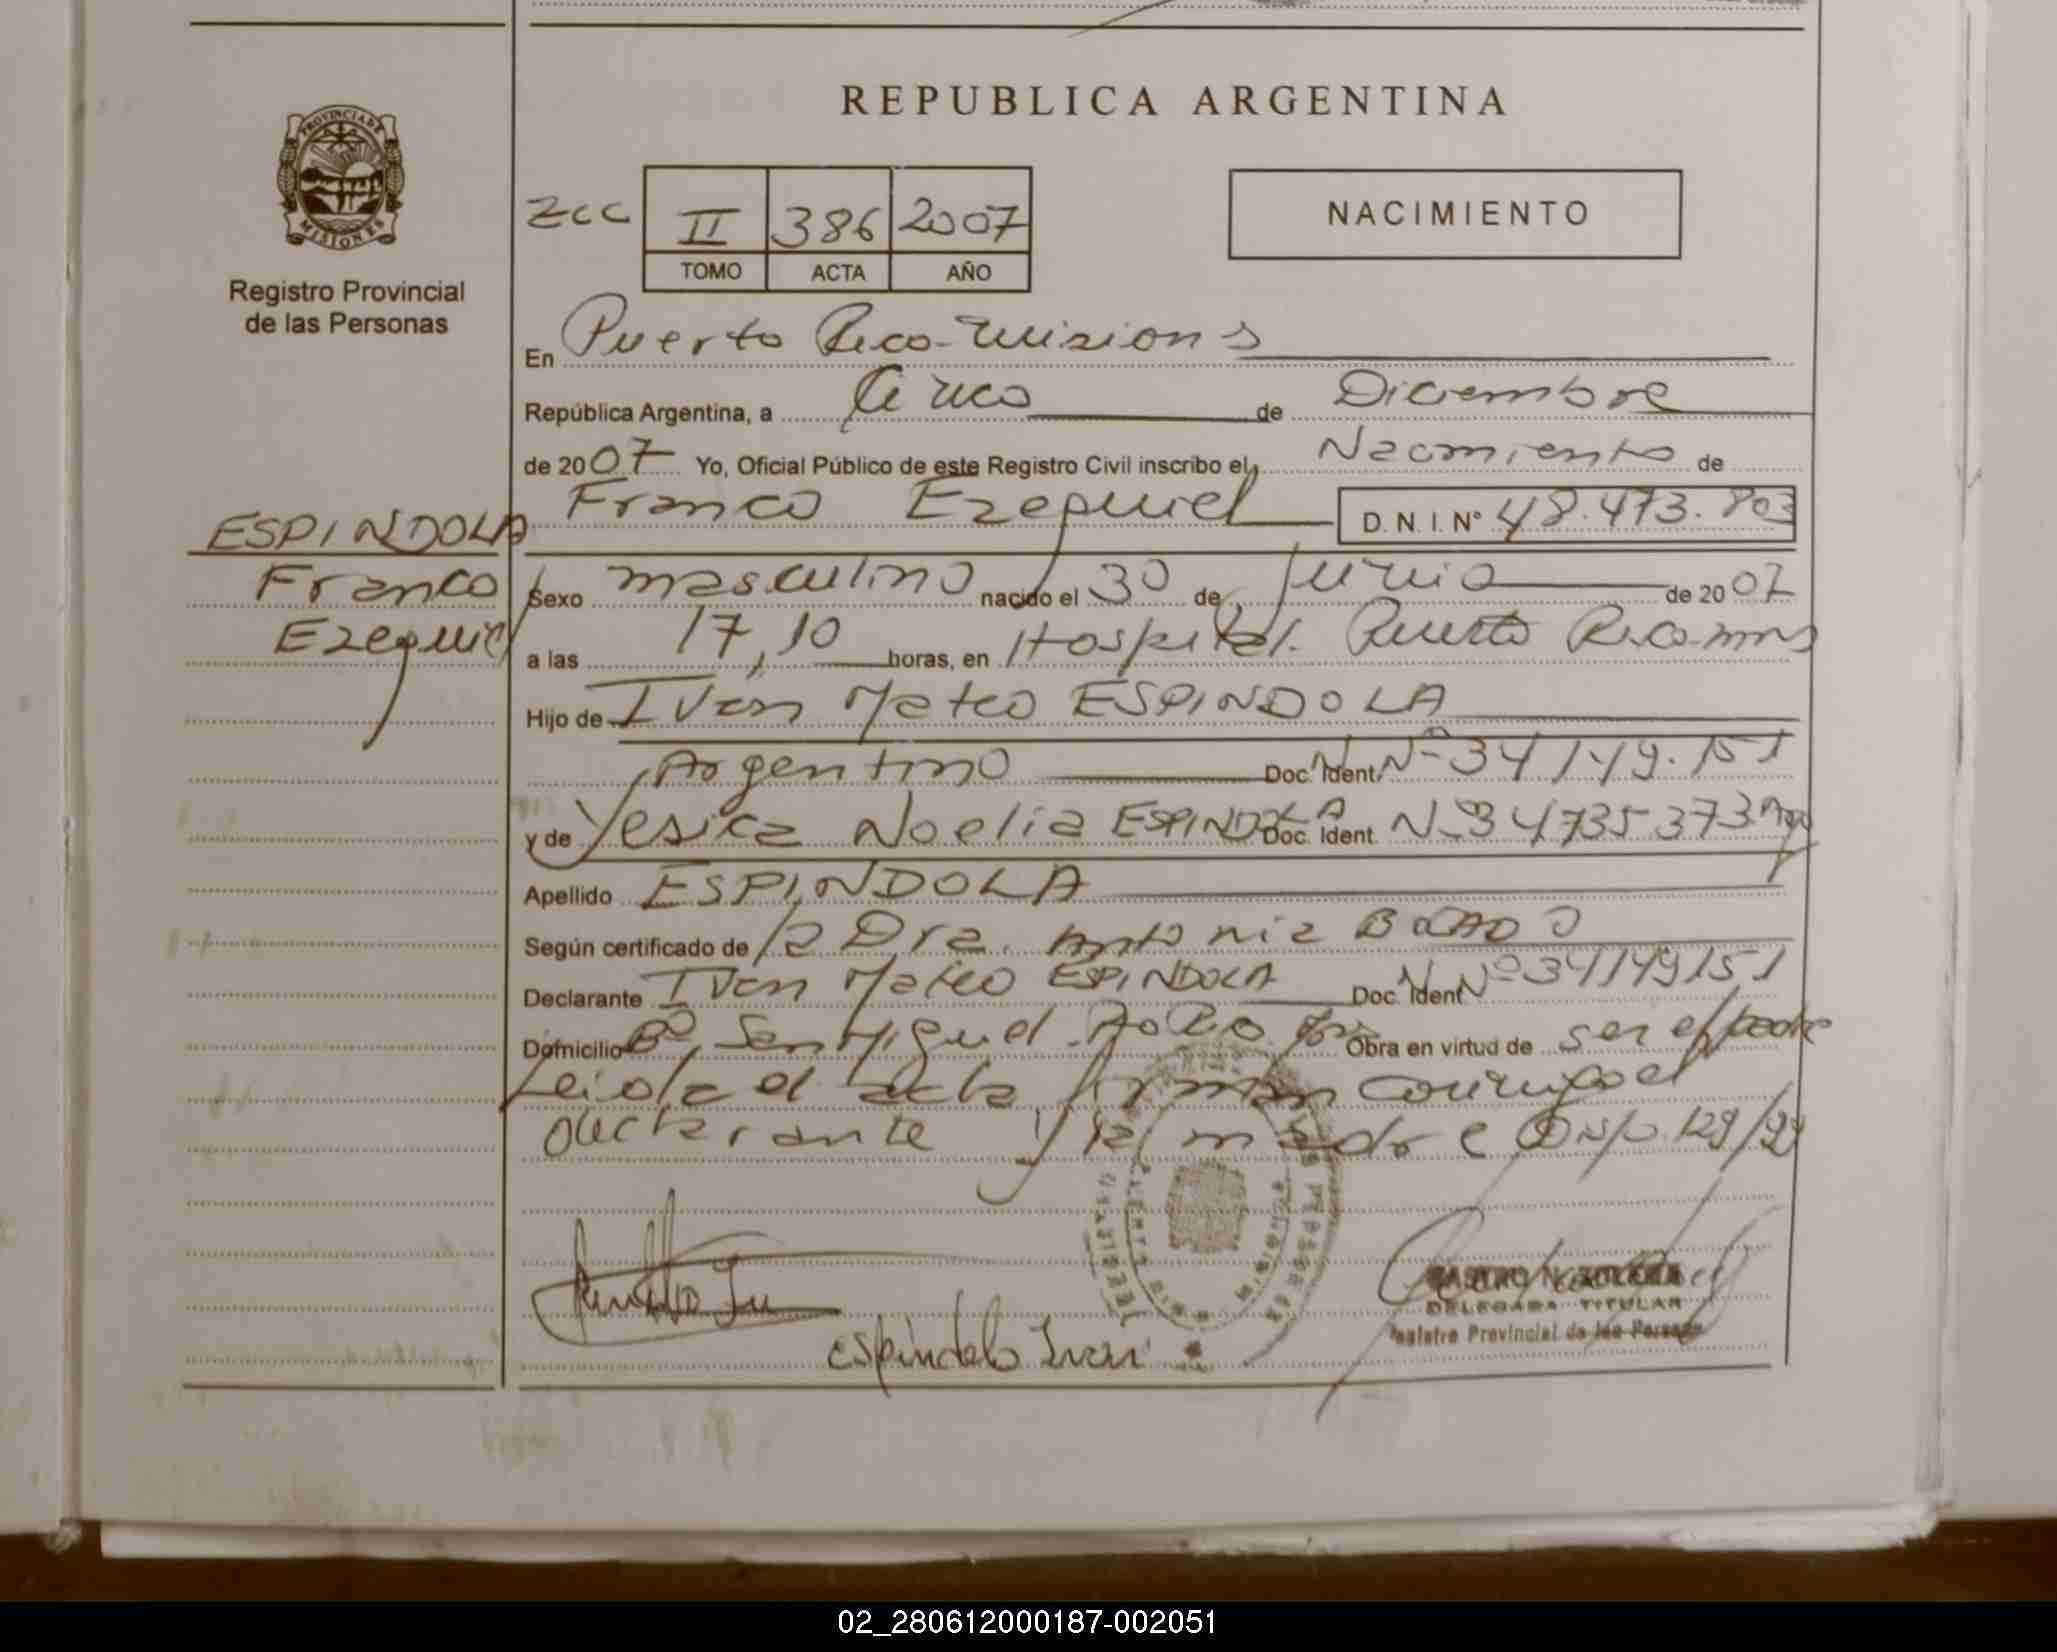 REPUBLICA ARGENTINA
PROVINCIA DE
MISIONES
Registro Provincial
de las Personas
II 386 2007
TOMO ACTA AÑO
NACIMIENTO
En Puerto Rico-Misions
República Argentina, a Cinco de Diciembre
de 2007 Yo, Oficial Público de este Registro Civil inscribo el Nacimiento de
Franco Ezequiel D. N. I. N° 48.473.803
ESPINDOLA
Franco
Ezequiel
Sexo masculino nacido el 30 de Junio de 2007
a las 17,10 horas, en Hospital. Puerto Rico-mns
Hijo de Ivan Mateo ESPINDOLA
Argentino Doc. Ident. Nº 34149.151
y de Yesica Noelia ESPINDOLA Doc. Ident. Nº 34735373
Apellido ESPINDOLA
Según certificado de la Dra. Antonia
Declarante Ivan Mateo ESPINDOLA Doc. Ident Nº 34149151
Domicilio Bº San Miguel. Obra en virtud de ser el padre
Leida el acta firman conmigo el
declarante y la madre Disp. 129/
espindola Ivan
DELEGADA TITULAR
Registro Provincial de las Personas
02_280612000187-002051